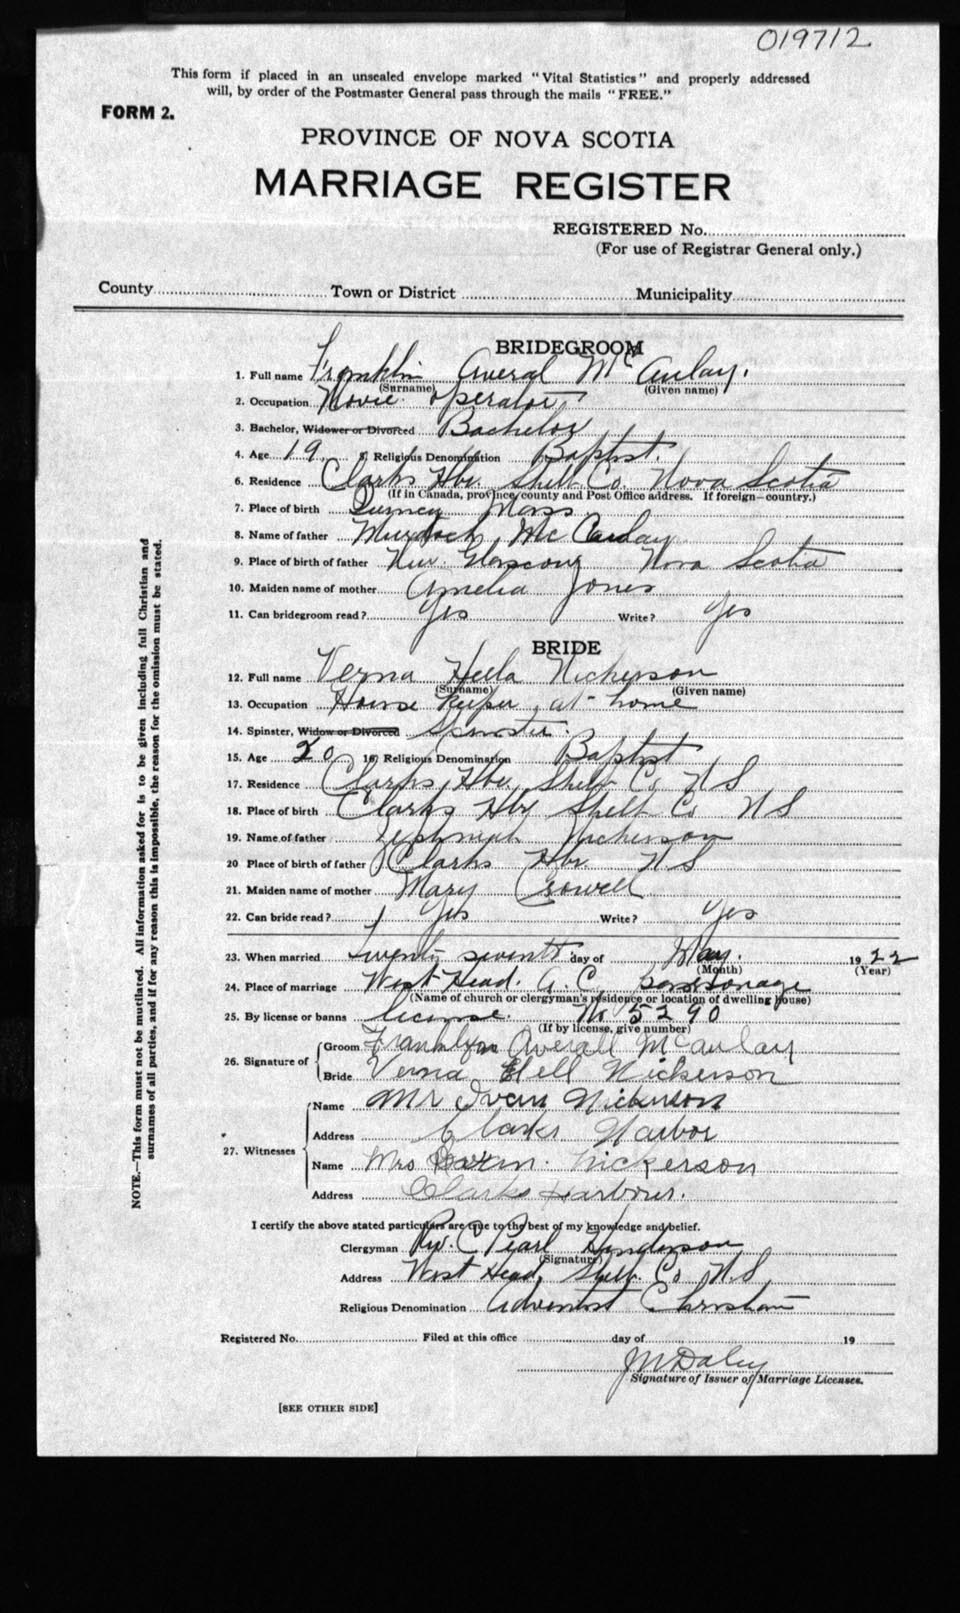 019712
This form if placed in an unsealed envelope marked "Vital Statistics" and properly addressed
will, by order of the Postmaster General pass through the mails "FREE."
FORM 2.
PROVINCE OF NOVA SCOTIA
MARRIAGE REGISTER
REGISTERED No.
(For use of Registrar General only.)
County Town or District Municipality
BRIDEGROOM
1. Full name Franklin Averal McAulay.
(Surname) (Given name)
2. Occupation Movie operator
3. Bachelor, Widower or Divorced Bachelor
4. Age 19 5. Religious Denomination Baptist.
6. Residence Clarks Hbr. Shelb Co. Nova Scotia
(If in Canada, province/county and Post Office address. If foreign—country.)
7. Place of birth Mass
8. Name of father Murdoch McCaulay
9. Place of birth of father New Glascow Nova Scotia
10. Maiden name of mother Amelia Jones
11. Can bridegroom read? Yes Write? Yes
BRIDE
12. Full name Verna Nickerson
(Surname) (Given name)
13. Occupation House keeper, at home
14. Spinster, Widow or Divorced Spinster.
15. Age 20 16 Religious Denomination Baptist
17. Residence Clarks Hbr. Shelb Co. N S
18. Place of birth Clarks Hbr Shelb Co N S
19. Name of father Nickerson
20 Place of birth of father Clarks Hbr. N S
21. Maiden name of mother Mary Crowell
22. Can bride read? Yes Write? Yes
23. When married Twenty seventh day of May. 1922
(Month) (Year)
24. Place of marriage West Head. A. C. parsonage
(Name of church or clergyman's residence or location of dwelling house)
25. By license or banns license. No 5290
(If by license, give number)
26. Signature of Groom Averall McAulay
Bride Verna Nickerson
27. Witnesses
Name Mr Ivan Nickerson
Address Clarks Harbor
Name Mrs Nickerson
Address Clarks Harbour.
I certify the above stated particulars are true to the best of my knowledge and belief.
Clergyman Rev. C Pearl Henderson
(Signature)
Address West Head, Shelb. Co. N.S.
Religious Denomination Adventist Christian
Registered No. Filed at this office day of 19
J M Daley
Signature of Issuer of Marriage Licenses.
[SEE OTHER SIDE]
NOTE.—This form must not be mutilated. All information asked for is to be given including full Christian and
surnames of all parties, and if for any reason this is impossible, the reason for the omission must be stated.